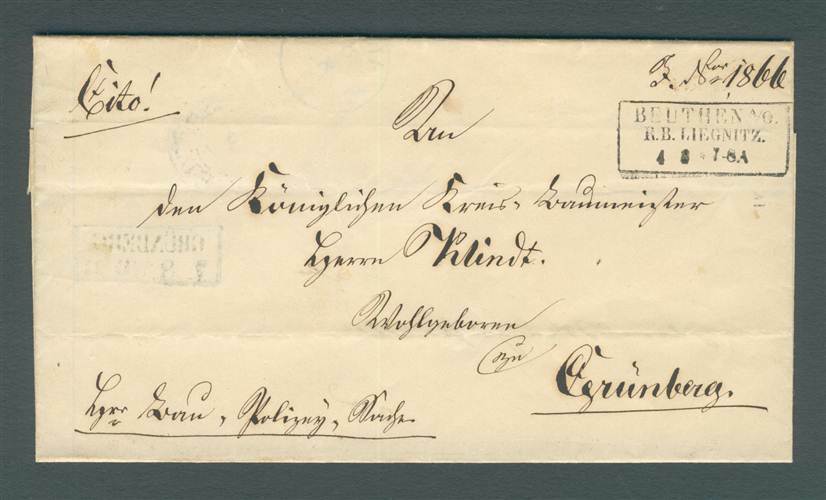 Cito!
J. No 1866
BEUTHEN a/O.
R.B. LIEGNITZ.
4 3 * 7-8A
An
den Königlichen Kreis-Baumeister
Herrn Klindt.
Wohlgeboren
zu
Grünberg.
Bau-Polizey-Sache
GRÜNBERG